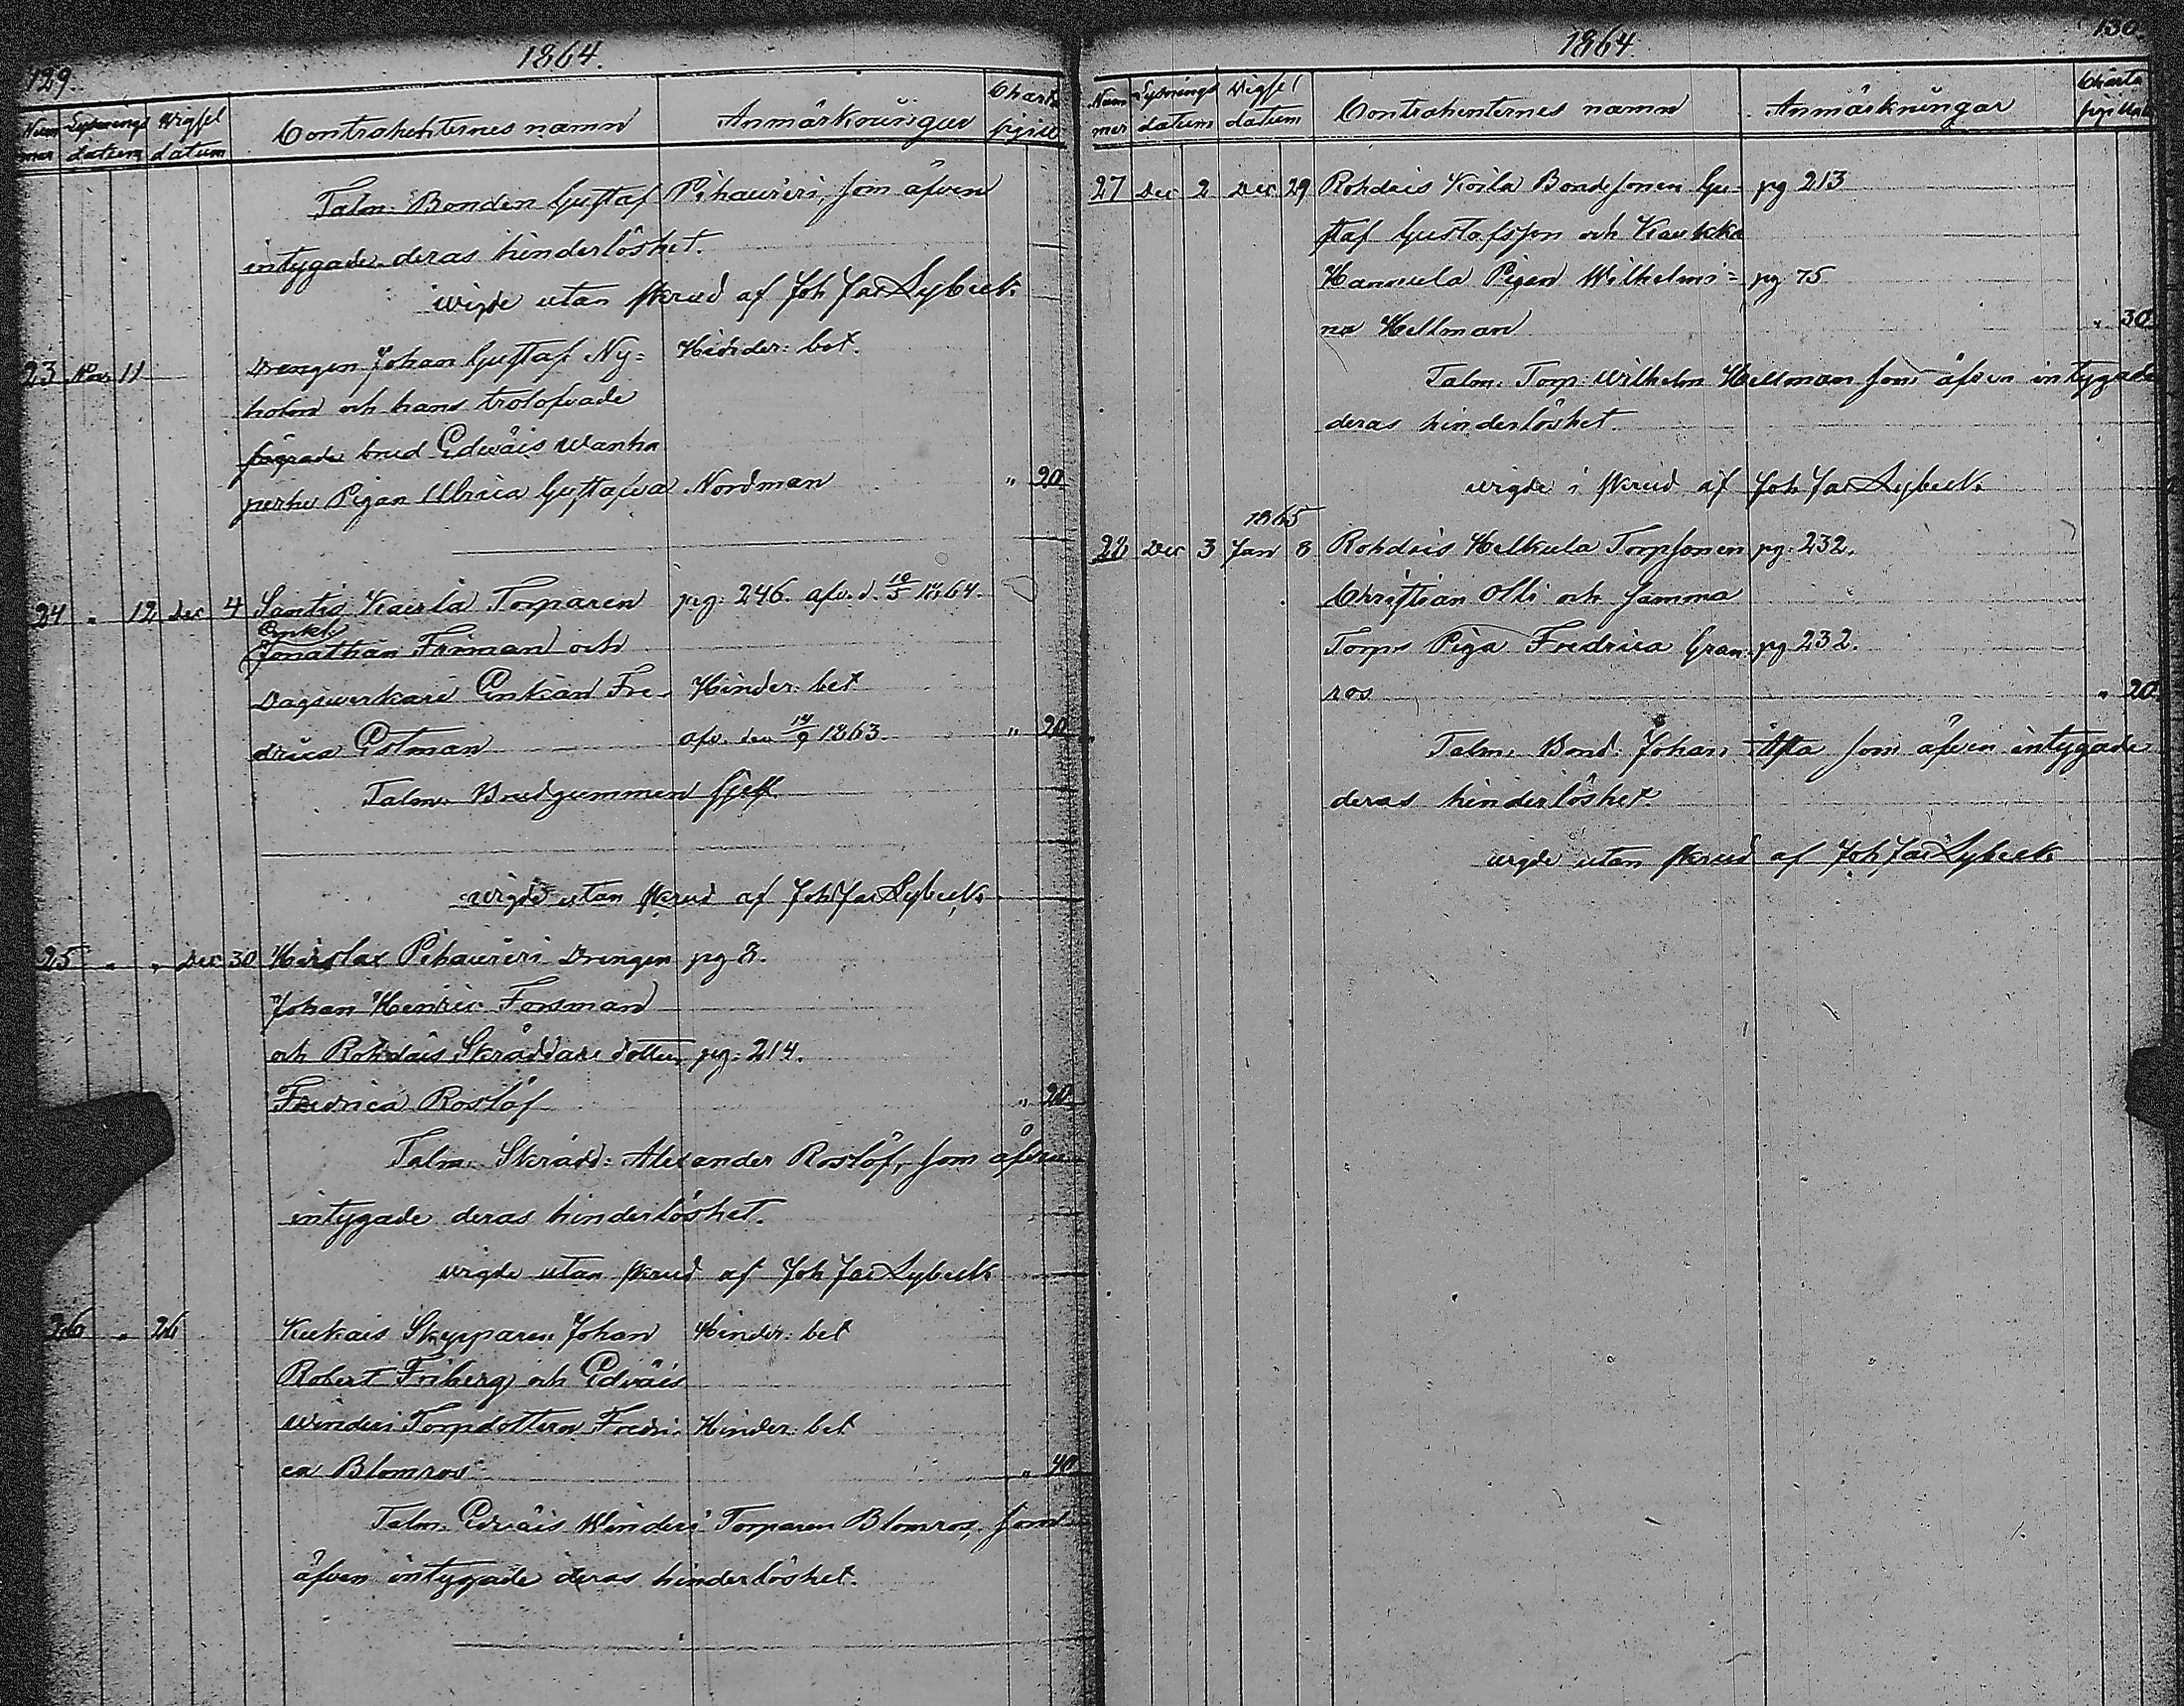 129.
1864.
Nummer Lysnings datum Wigsel datum Contrahenternes namn Anmärkningar Charta
Talm. Bonden Gustaf Pihaureri, som äfven
intygade deras hinderlöshet.
wigde utan skrud af Joh Jac Lybeck
23 Nov. 11 Drengen Johan Gustaf Ny= Hinder: bet.
holm och hans trolofvade
brud Edväis Wanha
perhe Pigan Ulrica Gustafva Nordman " 20
24 " 12 Dec 4 Santio Kaerla Torparen pg: 246. afv. d. 10/5 1864.
Enkl.
Jonathan Friman och
Dagsverkare Enkan Fre- Hinder: bet
drica Estman afv. den 14/9 1863. " 20
Talm. Brudgummen sjelf.
wigde utan skrud af Joh Jac Lybeck
25 " " Dec 30 Hirslax Pihaureri Drengen pg 8.
Johan Henric Forsman
och Rohdais Skräddare dotter pg: 214.
Fredrica Roslöf " 20
Talm. Skrädd: Alexander Roslöf, som äfven
intygade deras hinderlöshet.
wigde utan skrud af Joh Jac Lybeck
26 " 26 Kukais Skepparen Johan Hinder: bet
Robert Friberg och Edväis
Winderi Torpdottern Fredri- Hinder: bet
ca Blomros " 40
Talm. Edväis Winderi Torparen Blomros, som
äfven intygade deras hinderlöshet.
130.
1864
Nummer Lysnings datum Wigsel datum Contrahenternes namn Anmärkningar Charta
27 Dec 2 Dec 29 Rohdais Koila Bondesonen Gu= pg 213
staf Gustafsson och Kautkka
Hannula Pigan Wilhelmi= pg 75
na Hellman " 30
Talm. Torp. Wilhelm Hellman som äfven intygade
deras hinderlöshet.
wigde i skrud af Joh Jac Lybeck
1865
28 Dec 3 Jan 8 Rohdais Helkula Torpsonen pg: 232.
Christian Olli och samma
Torps Piga Fredrica Gran- pg 232.
ros " 20
Talm. Bond. Johan som äfven intygade
deras hinderlöshet.
wigde utan skrud af Joh Jac Lybeck